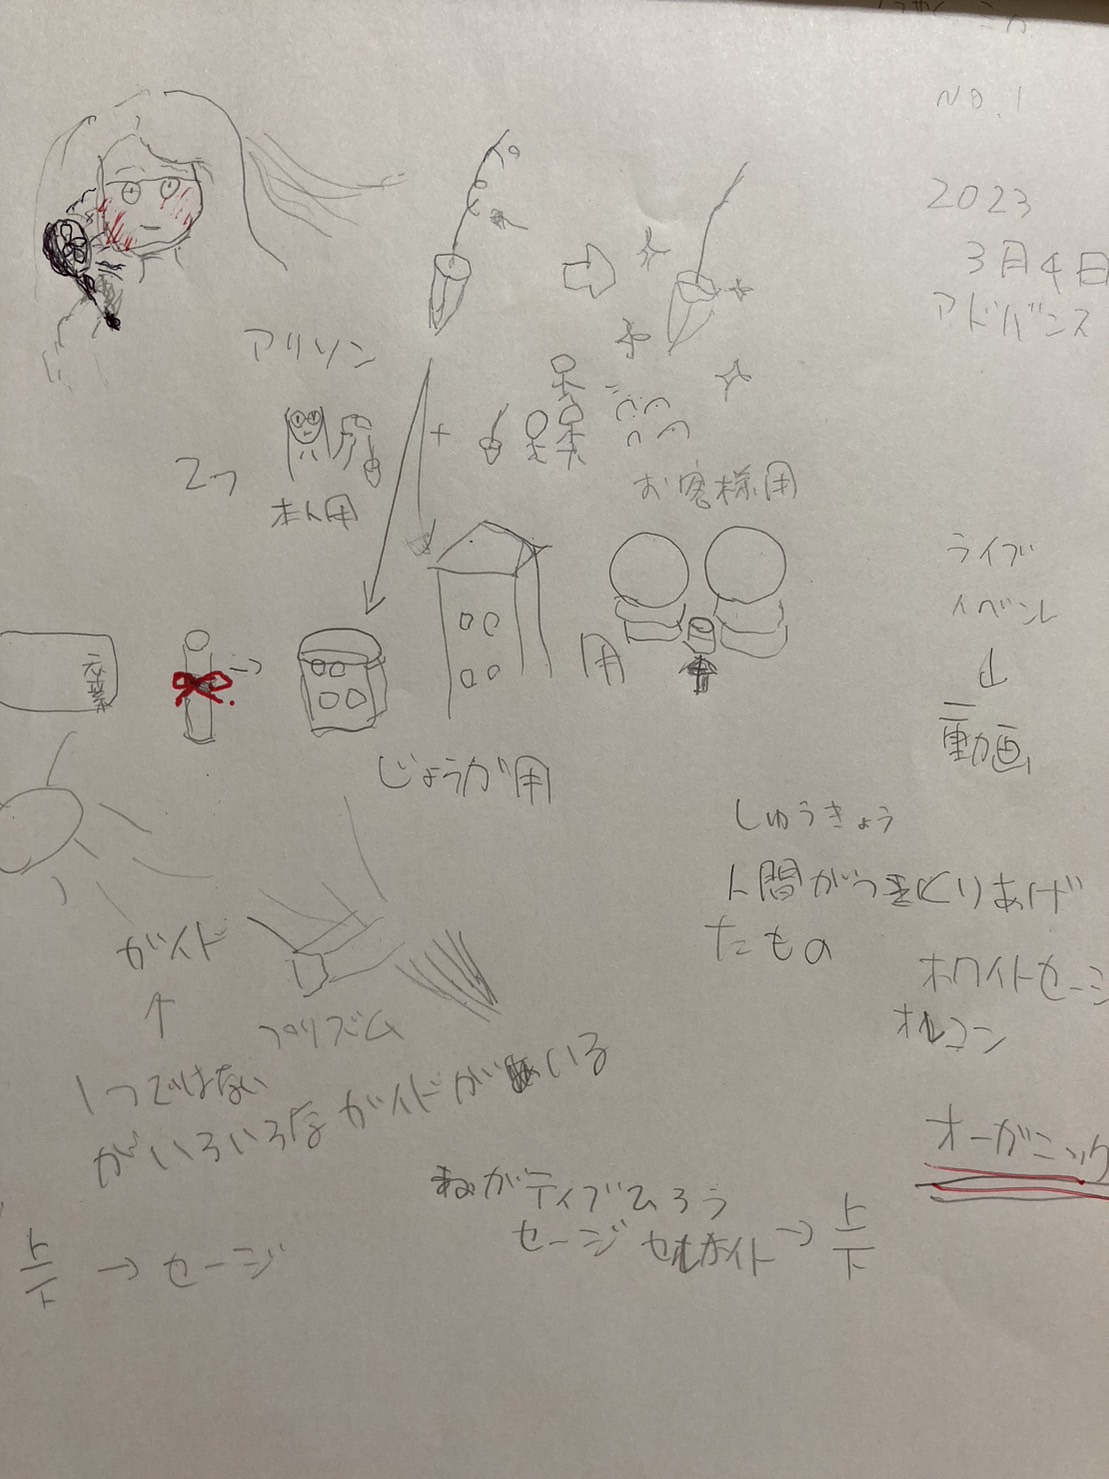 NO.1
2023
3月4日
アドバンス
アリソン
2つ
本人用
お客様用
ライブ
イベント
↓
動画
卒業
用
じょうか用
しゅうきょう
人間がつくりあげ
たもの
ホワイトセージ
オルコン
オーガニック
ガイド
↑
プリズム
1つではない
がいろいろなガイドがいる
ねがティブひろう
セージ セルナイト → 上下
上下 → セージ